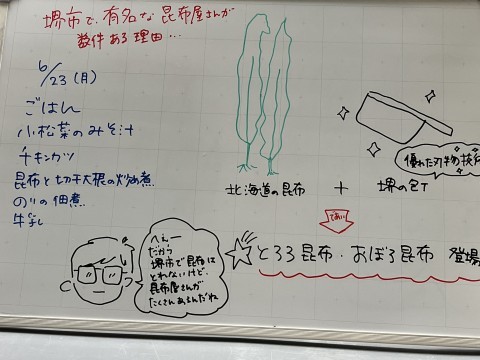 堺市で、有名な昆布屋さんが
数件ある理由…
6/23(月)
ごはん
小松菜のみそ汁
チキンカツ
昆布と切干大根の炒め煮
のりの佃煮
牛乳
北海道の昆布
+
優れた刃物技術
堺の包丁
であい
☆とろろ昆布・おぼろ昆布 登場
へぇー
だから
堺市で昆布は
とれないけど、
昆布屋さんが
たくさんあるんだね